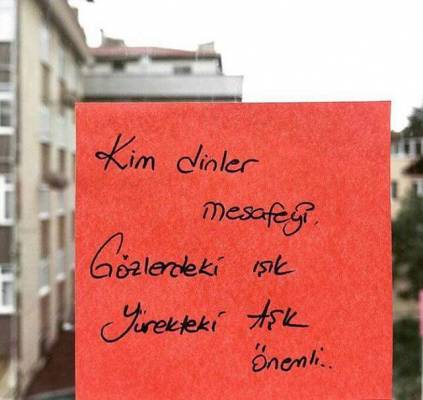 Kim dinler
mesafeyi?.
Gözlerdeki ışık
Yürekteki Aşk
Önemli..